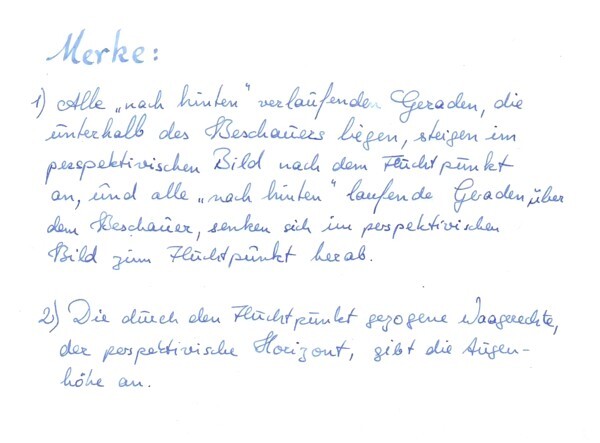 Merke:
1) Alle „nach hinten" verlaufenden Geraden, die
unterhalb des Beschauers liegen, steigen im
perspektivischen Bild nach dem Fluchtpunkt
an, und alle „nach hinten" laufende Geraden über
dem Beschauer, senken sich im perspektivischen
Bild zum Fluchtpunkt herab.
2) Die durch den Fluchtpunkt gezogene Waagerechte,
der perspektivische Horizont, gibt die Augen-
höhe an.